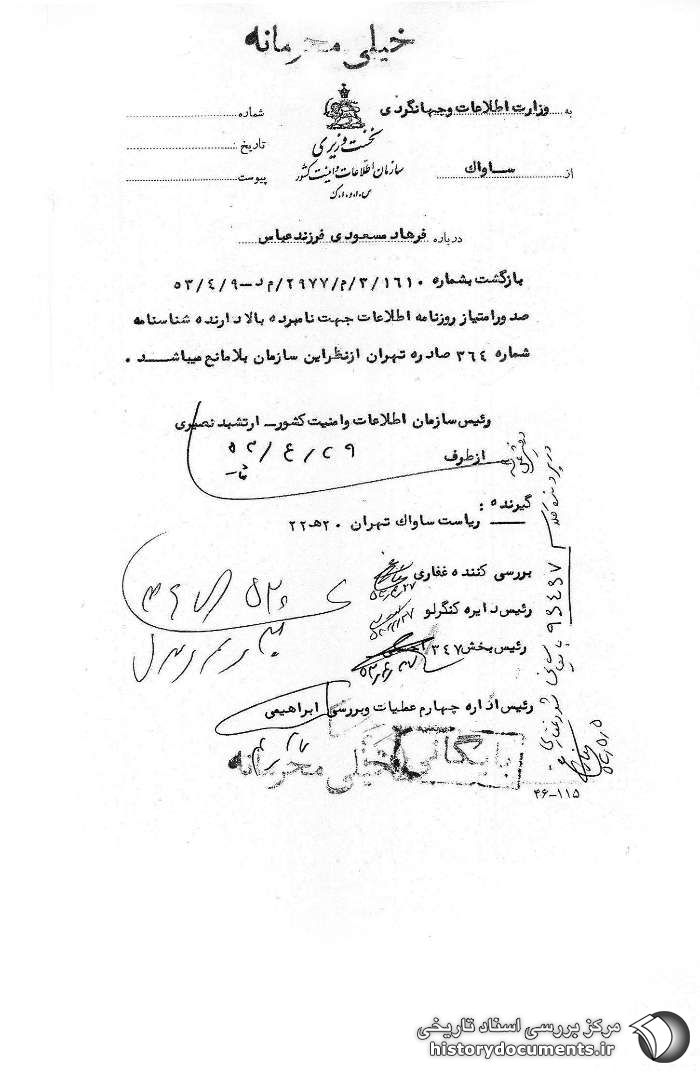 خیلی محرمانه
به وزارت اطلاعات وجهانگردی
شماره
نخست وزیری
تاریخ :
از ساواک
سازمان اطلاعات و امنیت کشور
پیوست
س.ا.و.ا.ک
درباره فرهاد مسعودی فرزند عباس
بازگشت بشماره ۱۶۱۰/۳/م/۲۹۷۷/م د-۵۳/۴/۹
صدورامتیاز روزنامه اطلاعات جهت نامبرده بالا دارنده شناسنامه
شماره ۳۶۴ صادره تهران ازنظراین سازمان بلامانع میباشد .
رئیس سازمان اطلاعات وامنیت کشور- ارتشبد نصیری
ازطرف
گیرنده :
ریاست ساواک تهران ۲۰هـ۲۲
بررسی کننده غفاری
رئیس دایره کنگرلو
رئیس بخش ۳۴۷
رئیس اداره چهارم عملیات وبررسی ابراهیمی
بایگانی
خیلی محرمانه
۴۶-۱۱۵
مرکز بررسی اسناد تاریخی
historydocuments.ir